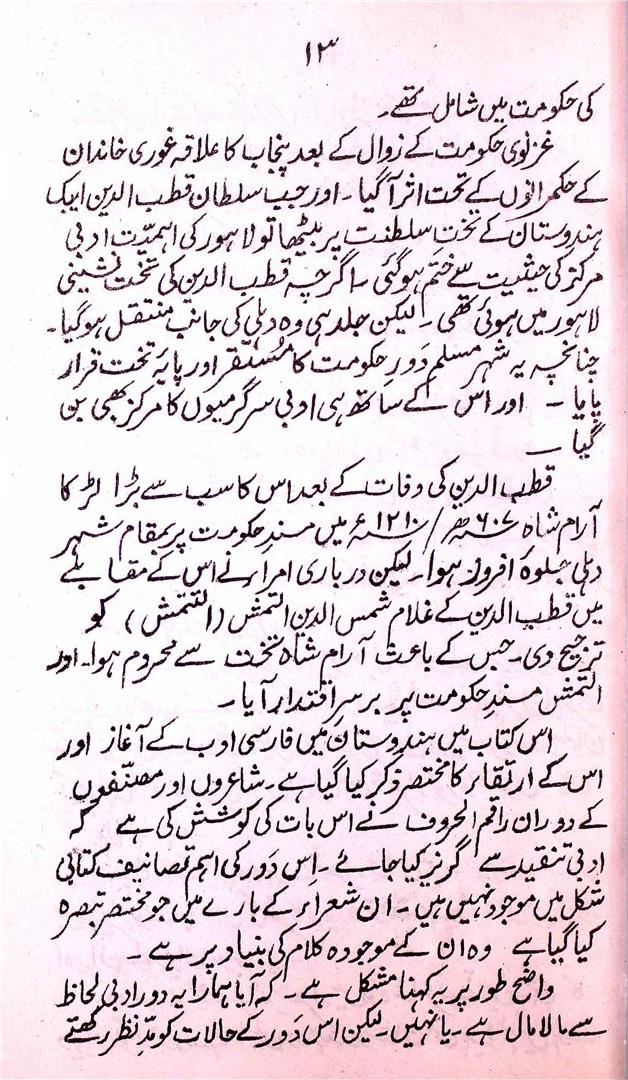 ۱۳
کی حکومت میں شامل تھے۔
غزنوی حکومت کے زوال کے بعد پنجاب کا علاقہ غوری خاندان
کے حکمرانوں کے تحت اثر آگیا۔ اور جب سلطان قطب الدین ایبک
ہندوستان کے تختِ سلطنت پر بیٹھا تو لاہور کی اہمیّت ادبی
مرکز کی حیثیت سے ختم ہوگئی۔ اگرچہ قطب الدین کی تخت نشینی
لاہور میں ہوئی تھی۔ لیکن جلد ہی وہ دہلی کی جانب منتقل ہوگیا۔
چنانچہ یہ شہر مسلم دَورِ حکومت کا مُستقر اور پایۂ تخت قرار
پایا۔ اور اس کے ساتھ ہی ادبی سرگرمیوں کا مرکز بھی بن
گیا۔
قطب الدین کی وفات کے بعد اس کا سب سے بڑا لڑکا
آرام شاہ ۶۰۷ھ / ۱۲۱۰ء میں مسندِ حکومت پر بمقام شہر
دہلی جلوہ افروز ہوا۔ لیکن درباری امراء نے اس کے مقابلے
میں قطب الدین کے غلام شمس الدین التمش (التتمش) کو
ترجیح دی۔ جس کے باعث آرام شاہ تخت سے محروم ہوا۔ اور
التمش مسندِ حکومت پر برسرِ اقتدار آیا۔
اس کتاب میں ہندوستان میں فارسی ادب کے آغاز اور
اس کے ارتقاء کا مختصر ذکر کیا گیا ہے۔ شاعروں اور مصنّفوں
کے دوران راقم الحروف نے اس بات کی کوشش کی ہے کہ
ادبی تنقید سے گریز کیا جائے۔ اِس دَور کی اہم تصانیف کتابی
شکل میں موجود نہیں ہیں۔ ان شعراء کے بارے میں جو مختصر تبصرہ
کیا گیا ہے وہ ان کے موجودہ کلام کی بنیاد پر ہے۔
واضح طور پر یہ کہنا مشکل ہے۔ کہ آیا ہمارا یہ دور ادبی لحاظ
سے مالا مال ہے۔ یا نہیں۔ لیکن اس دَور کے حالات کو مدِّ نظر رکھتے